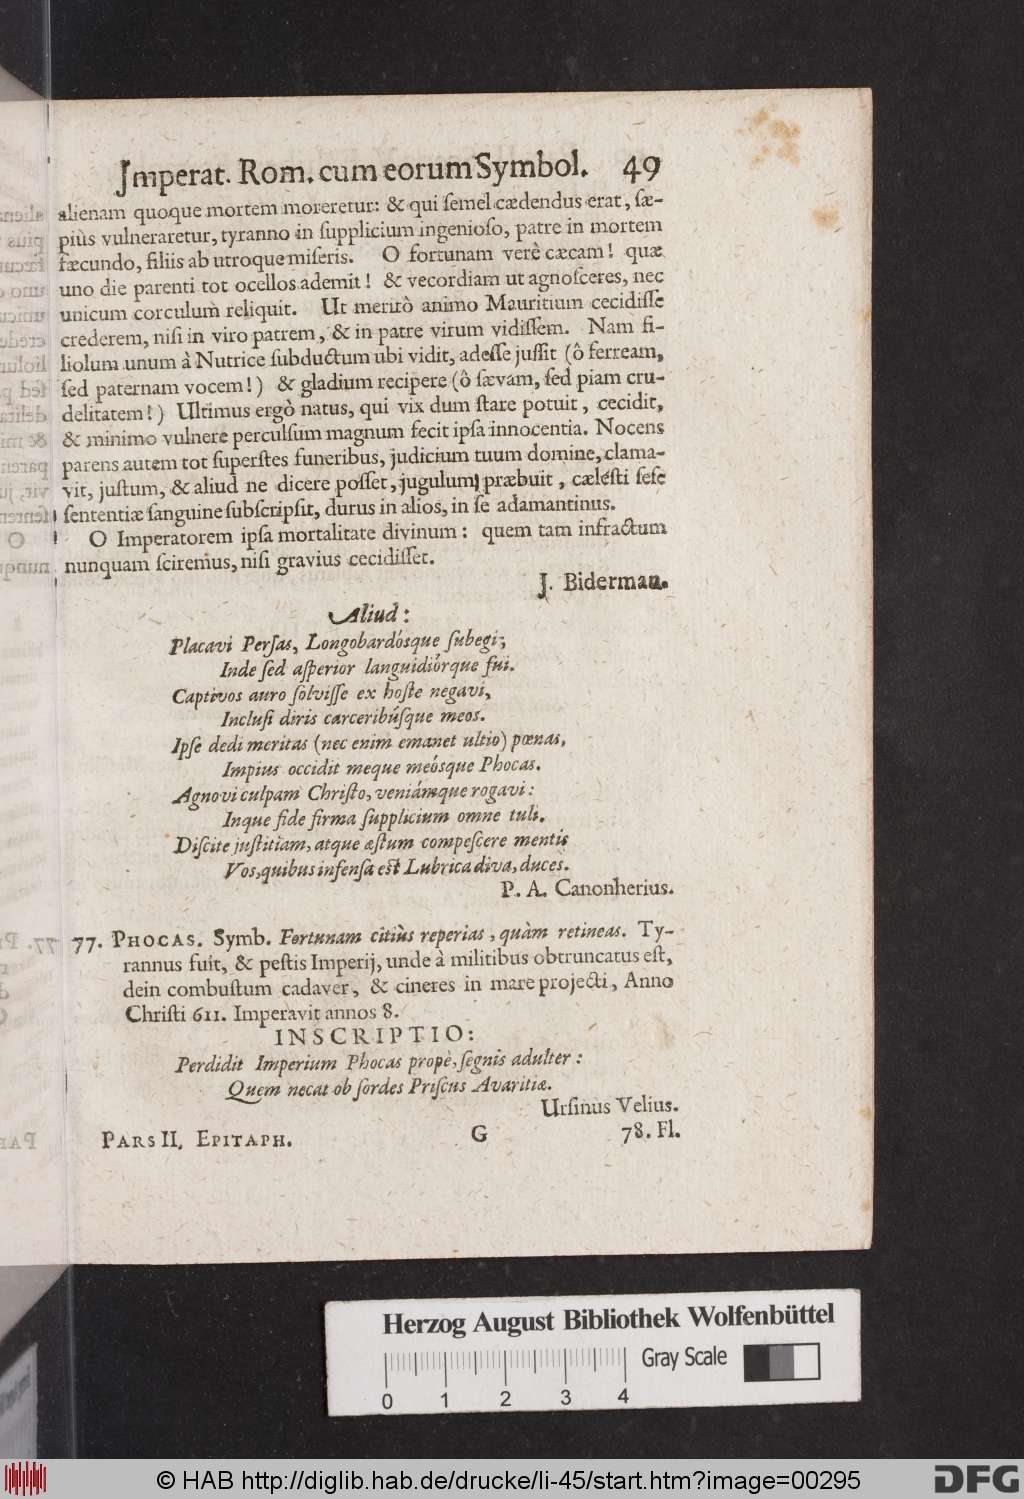 Imperat. Rom. cum eorum Symbol. 49
alienam quoque mortem moreretur: & qui ſemel cædendus erat, ſæ-
piùs vulneraretur, tyranno in ſupplicium ingenioſo, patre in mortem
fæcundo, filiis ab utroque miſeris. O fortunam verè cæcam! quæ
uno die parenti tot ocellos ademit! & vecordiam ut agnoſceres, nec
unicum corculum reliquit. Ut meritò animo Mauritium cecidiſſe
crederem, niſi in viro patrem, & in patre virum vidiſſem. Nam fi-
liolum unum à Nutrice ſubductum ubi vidit, adeſſe juſſit (ô ferream,
ſed paternam vocem!) & gladium recipere (ô ſævam, ſed piam cru-
delitatem!) Ultimus ergò natus, qui vix dum ſtare potuit, cecidit,
& minimo vulnere perculſum magnum fecit ipſa innocentia. Nocens
parens autem tot ſuperſtes funeribus, judicium tuum domine, clama-
vit, juſtum, & aliud ne dicere poſſet, jugulum præbuit, cæleſti ſeſe
ſententiæ ſanguine ſubſcripſit, durus in alios, in ſe adamantinus.
O Imperatorem ipſa mortalitate divinum: quem tam infractum
nunquam ſciremus, niſi gravius cecidiſſet.
J. Biderman.
Aliud:
Placavi Perſas, Longobardósque ſubegi;
Inde ſed aſperior languidiórque fui.
Captivos auro ſolviſſe ex hoſte negavi,
Incluſi diris carceribúſque meos.
Ipſe dedi meritas (nec enim emanet ultio) pœnas,
Impius occidit meque meósque Phocas.
Agnovi culpam Chriſto, veniámque rogavi:
Inque fide firma ſupplicium omne tuli.
Diſcite juſtitiam, atque æſtum compeſcere mentis
Vos, quibus infenſa eſt Lubrica diva, duces.
P. A. Canonherius.
77. PHOCAS. Symb. Fortunam citiùs reperias, quàm retineas. Ty-
rannus fuit, & peſtis Imperij, unde à militibus obtruncatus eſt,
dein combuſtum cadaver, & cineres in mare projecti, Anno
Chriſti 611. Imperavit annos 8.
INSCRIPTIO:
Perdidit Imperium Phocas propè, ſegnis adulter:
Quem necat ob ſordes Priſcus Avaritiæ.
Urſinus Velius.
PARS II. EPITAPH. G 78. Fl.
Herzog August Bibliothek Wolfenbüttel
Gray Scale
0 1 2 3 4
© HAB http://diglib.hab.de/drucke/li-45/start.htm?image=00295
DFG